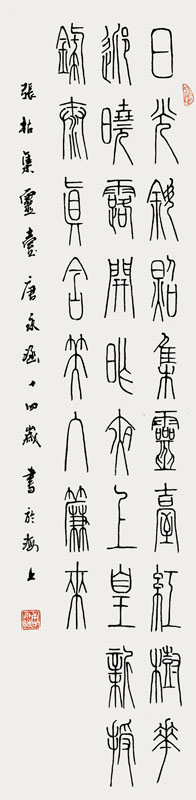 日光斜照集靈臺紅樹花
迎曉露開昨夜上皇新授
籙太真含笑入簾來
張祜集靈臺唐永十四歲書於海上